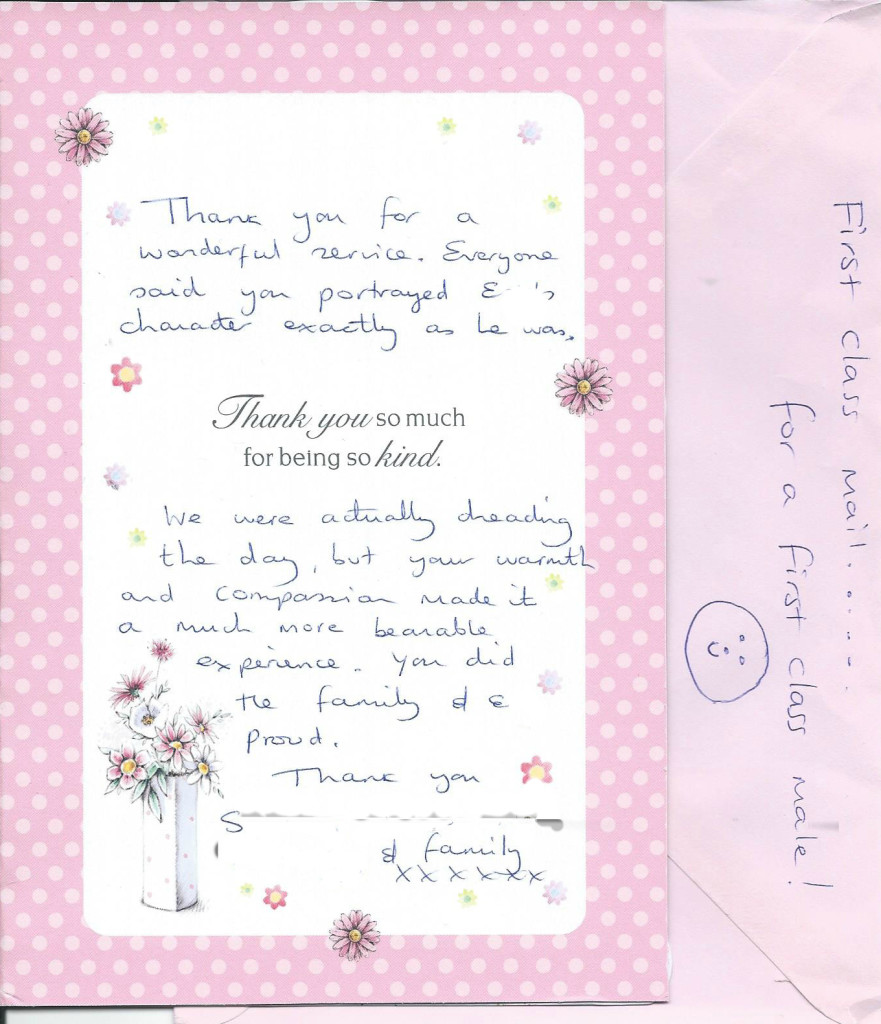 Thank you for a
wonderful service. Everyone
said you portrayed E 's
character exactly as he was.
Thank you so much
for being so kind.
We were actually dreading
the day, but your warmth
and compassion made it
a much more bearable
experience. You did
the family & E
proud.
Thank you
S
& family
xxxxxx
First class mail......
for a first class male!